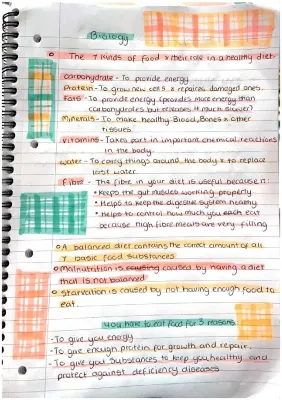 Biology
The 7 kinds of food & their role in a healthy diet.
Carbohydrate - To provide energy
Protein - To grow new cells & repairs damaged ones.
Fats - To provide energy (provides more energy than
carbohydrates but releases it much slower)
Minerals - To make healthy Blood, Bones & other
tissues.
Vitamins - Takes part in important chemical reactions
in the body.
Water - To carry things around the body & to replace
lost water.
Fibre - The fibre in your diet is useful because it:
* Keeps the gut muscles working properly
* Helps to keep the digestive system healthy
* Helps to control how much you each eat
because high fibre meals are very filling
A balanced diet contains the correct amount of all
7 basic food substances
Malnutrition is causing caused by having a diet
that is not balanced
Starvation is caused by not having enough food to
eat.
You have to eat food for 3 reasons
- To give you energy
- To give enough protein for growth and repair.
- To give you substances to keep you healthy and
protect against deficiency diseases